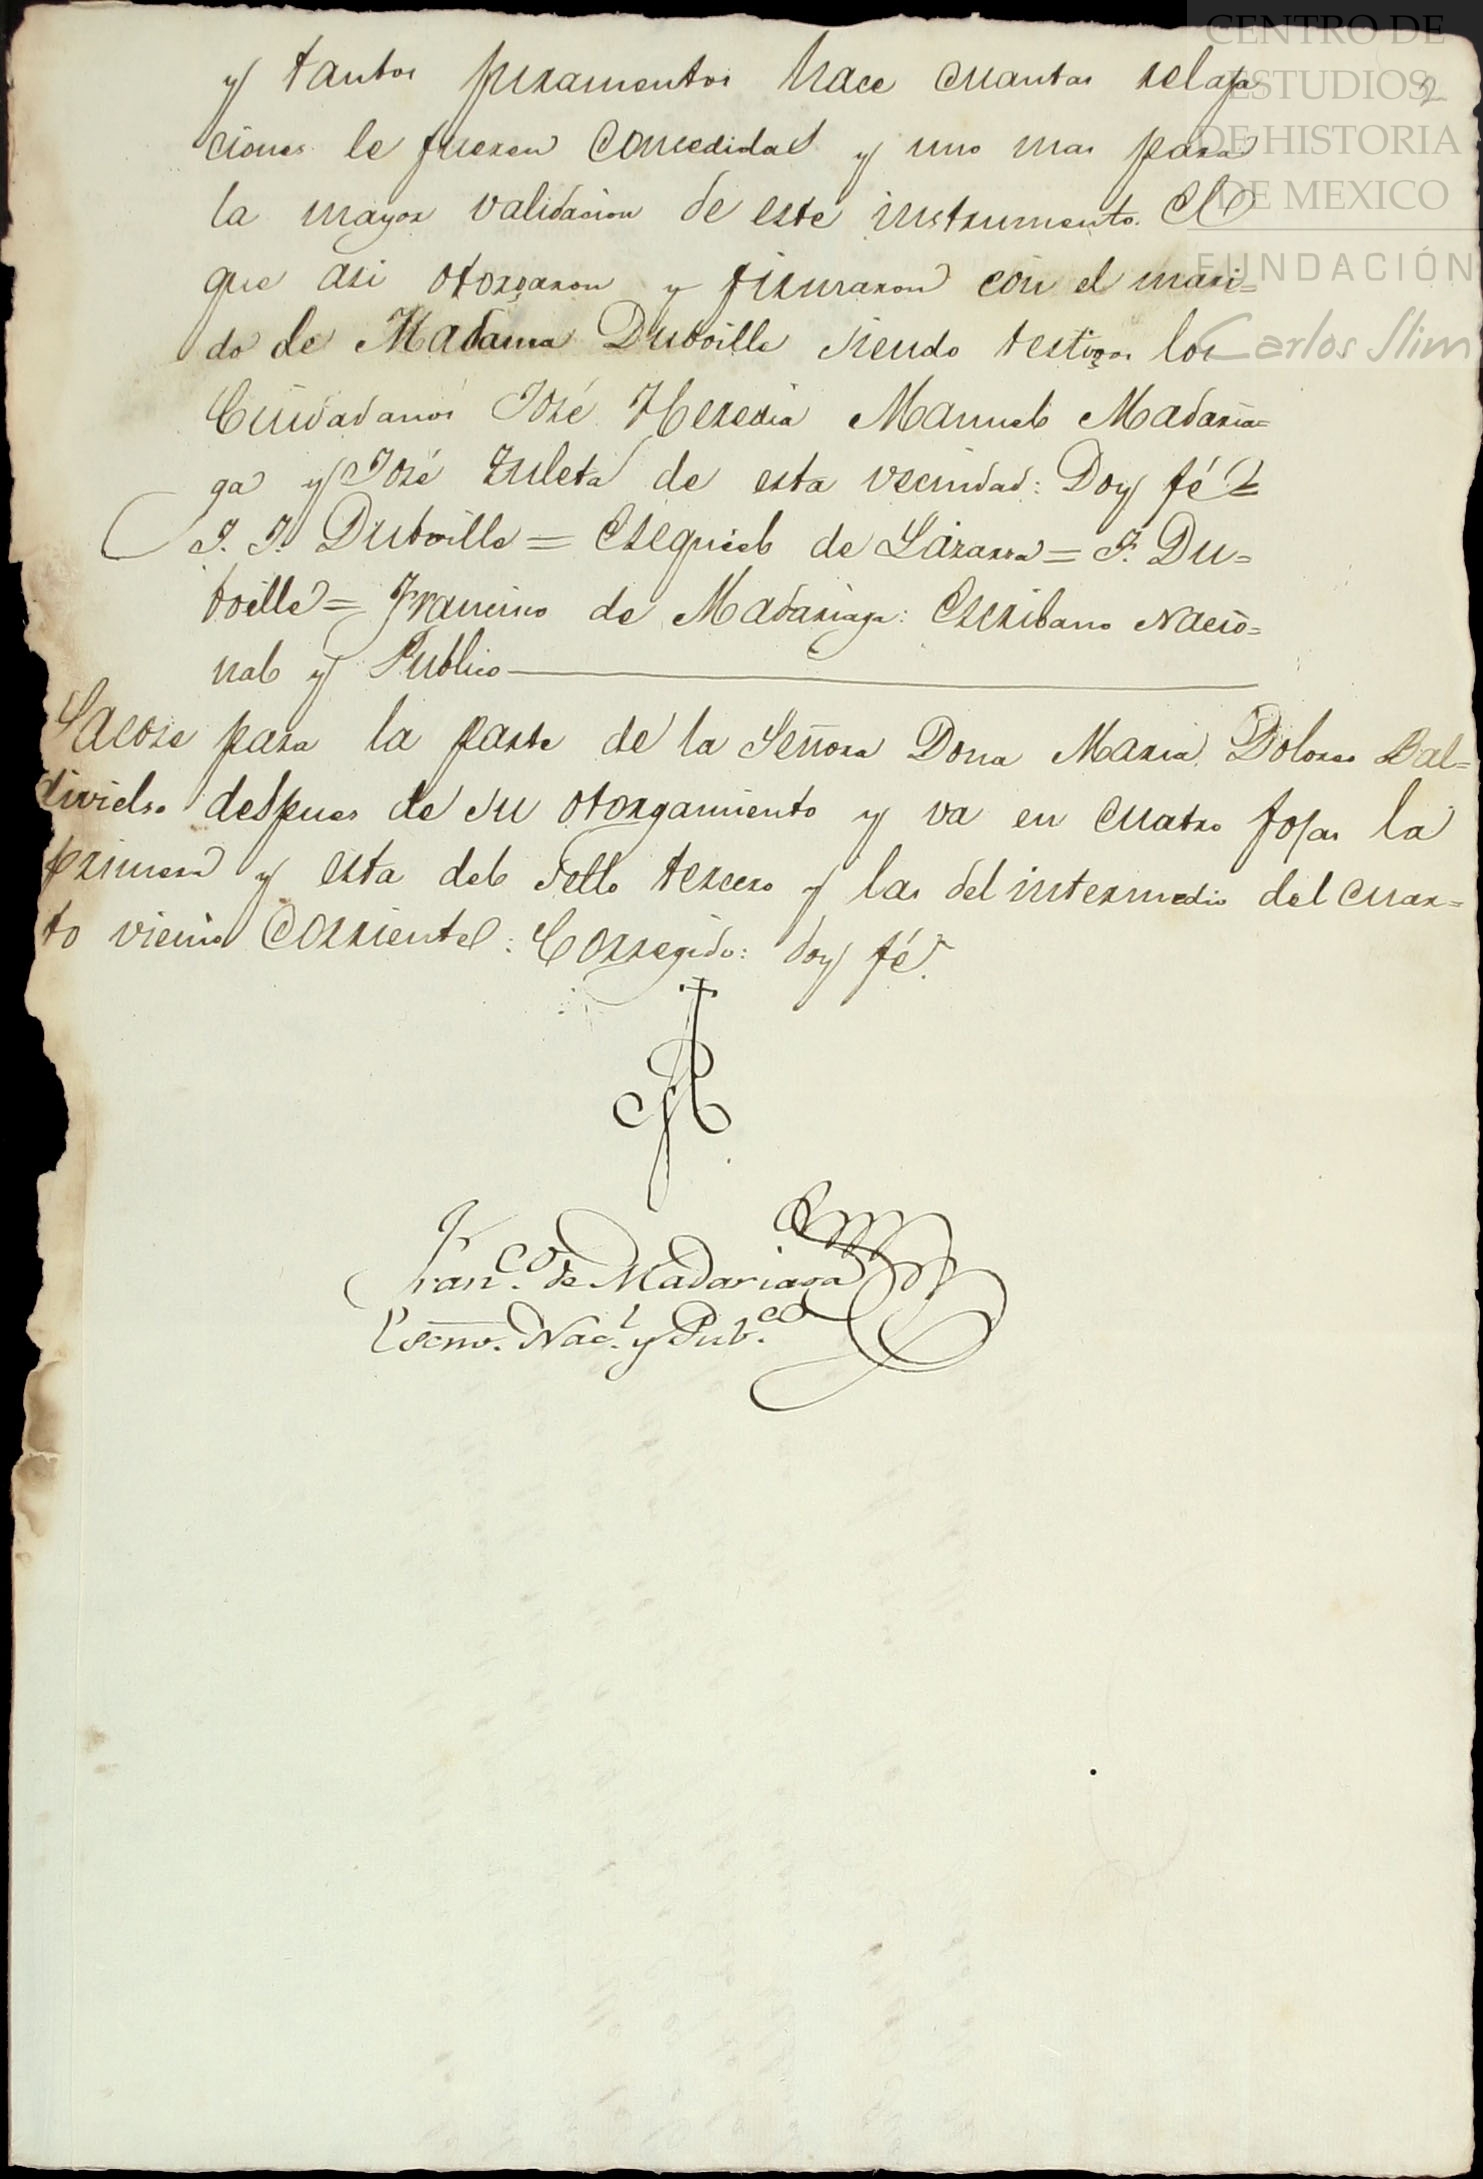 CENTRO DE
ESTUDIOS
DE HISTORIA
DE MEXICO
FUNDACIÓN
Carlos Slim
2
y tantos juramentos hace cuantas relaja
ciones le fueren concedidas y uno mas para
la mayor validacion de este instrumento. El
que asi otorgaron y firmaron con el mari=
do de Madama Dutoille siendo testigos los
Ciudadanos José Heredia Manuel Madaria=
ga y José Zuleta de esta vecindad: Doy fé=
J. J. Dutoille = Esequiel de Lizarza = F. Du=
toille = Francisco de Madariaga: Escribano Nacio=
nal y Publico
Sacose para la parte de la Señora Dona Maria Dolores Bal=
divielso despues de su otorgamiento y va en cuatro fojas la
primera y esta del sello tercero y las del intermedio del cuar=
to vienio corriente: Corregido: doy fé.
Fran.co de Madariaga
Escno. Nac.l y Pub.co